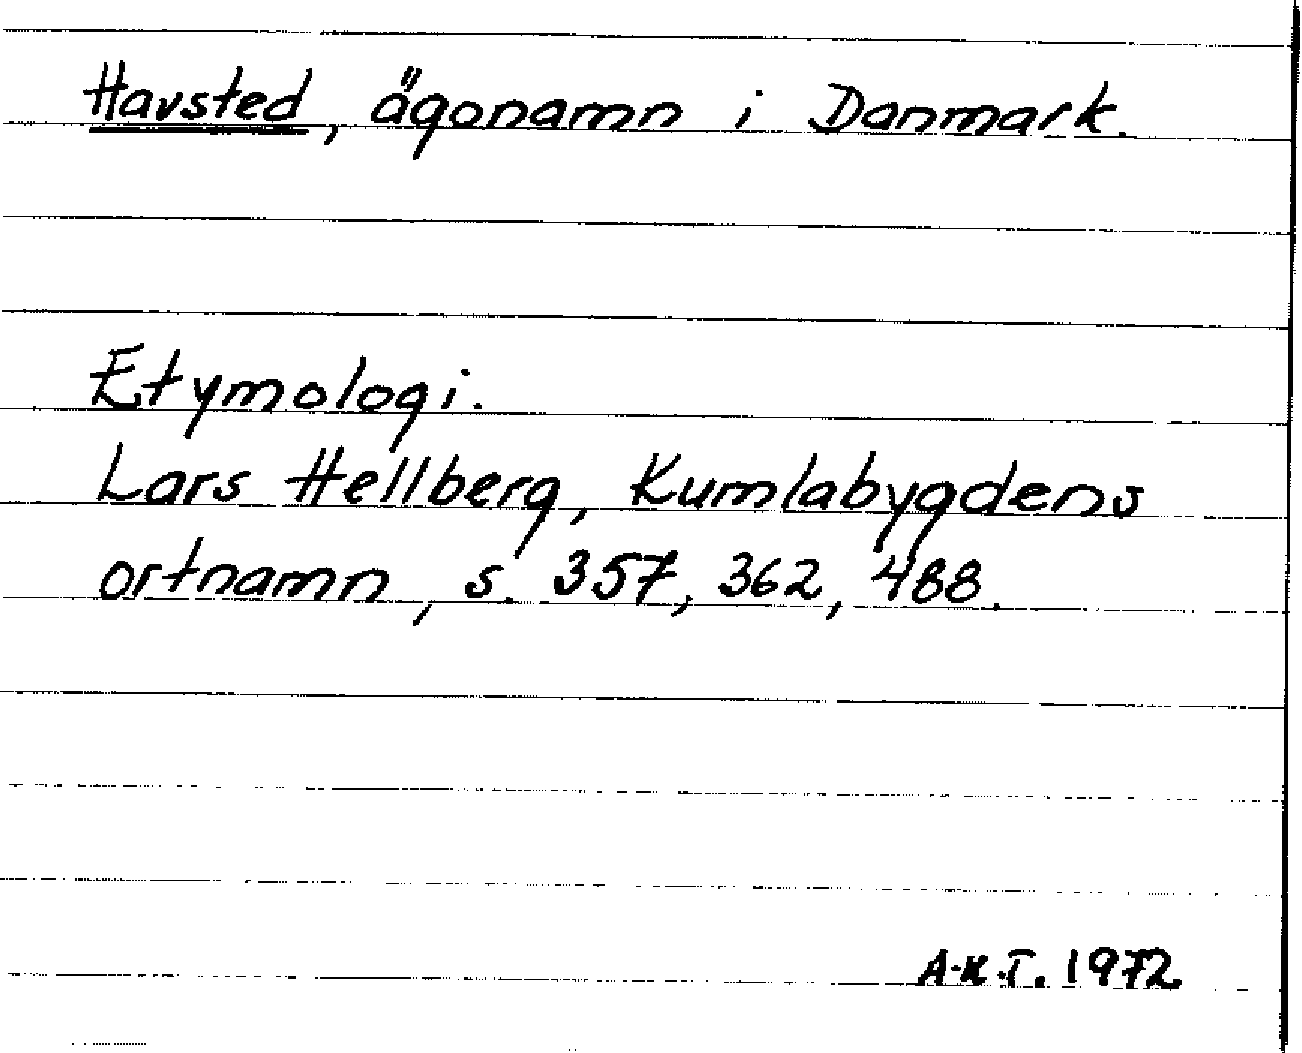 Havsted, ägonamn i Danmark.
Etymologi.
Lars Hellberg, Kumlabygdens
ortnamn, s. 357, 362, 488.
A-K.T. 1972